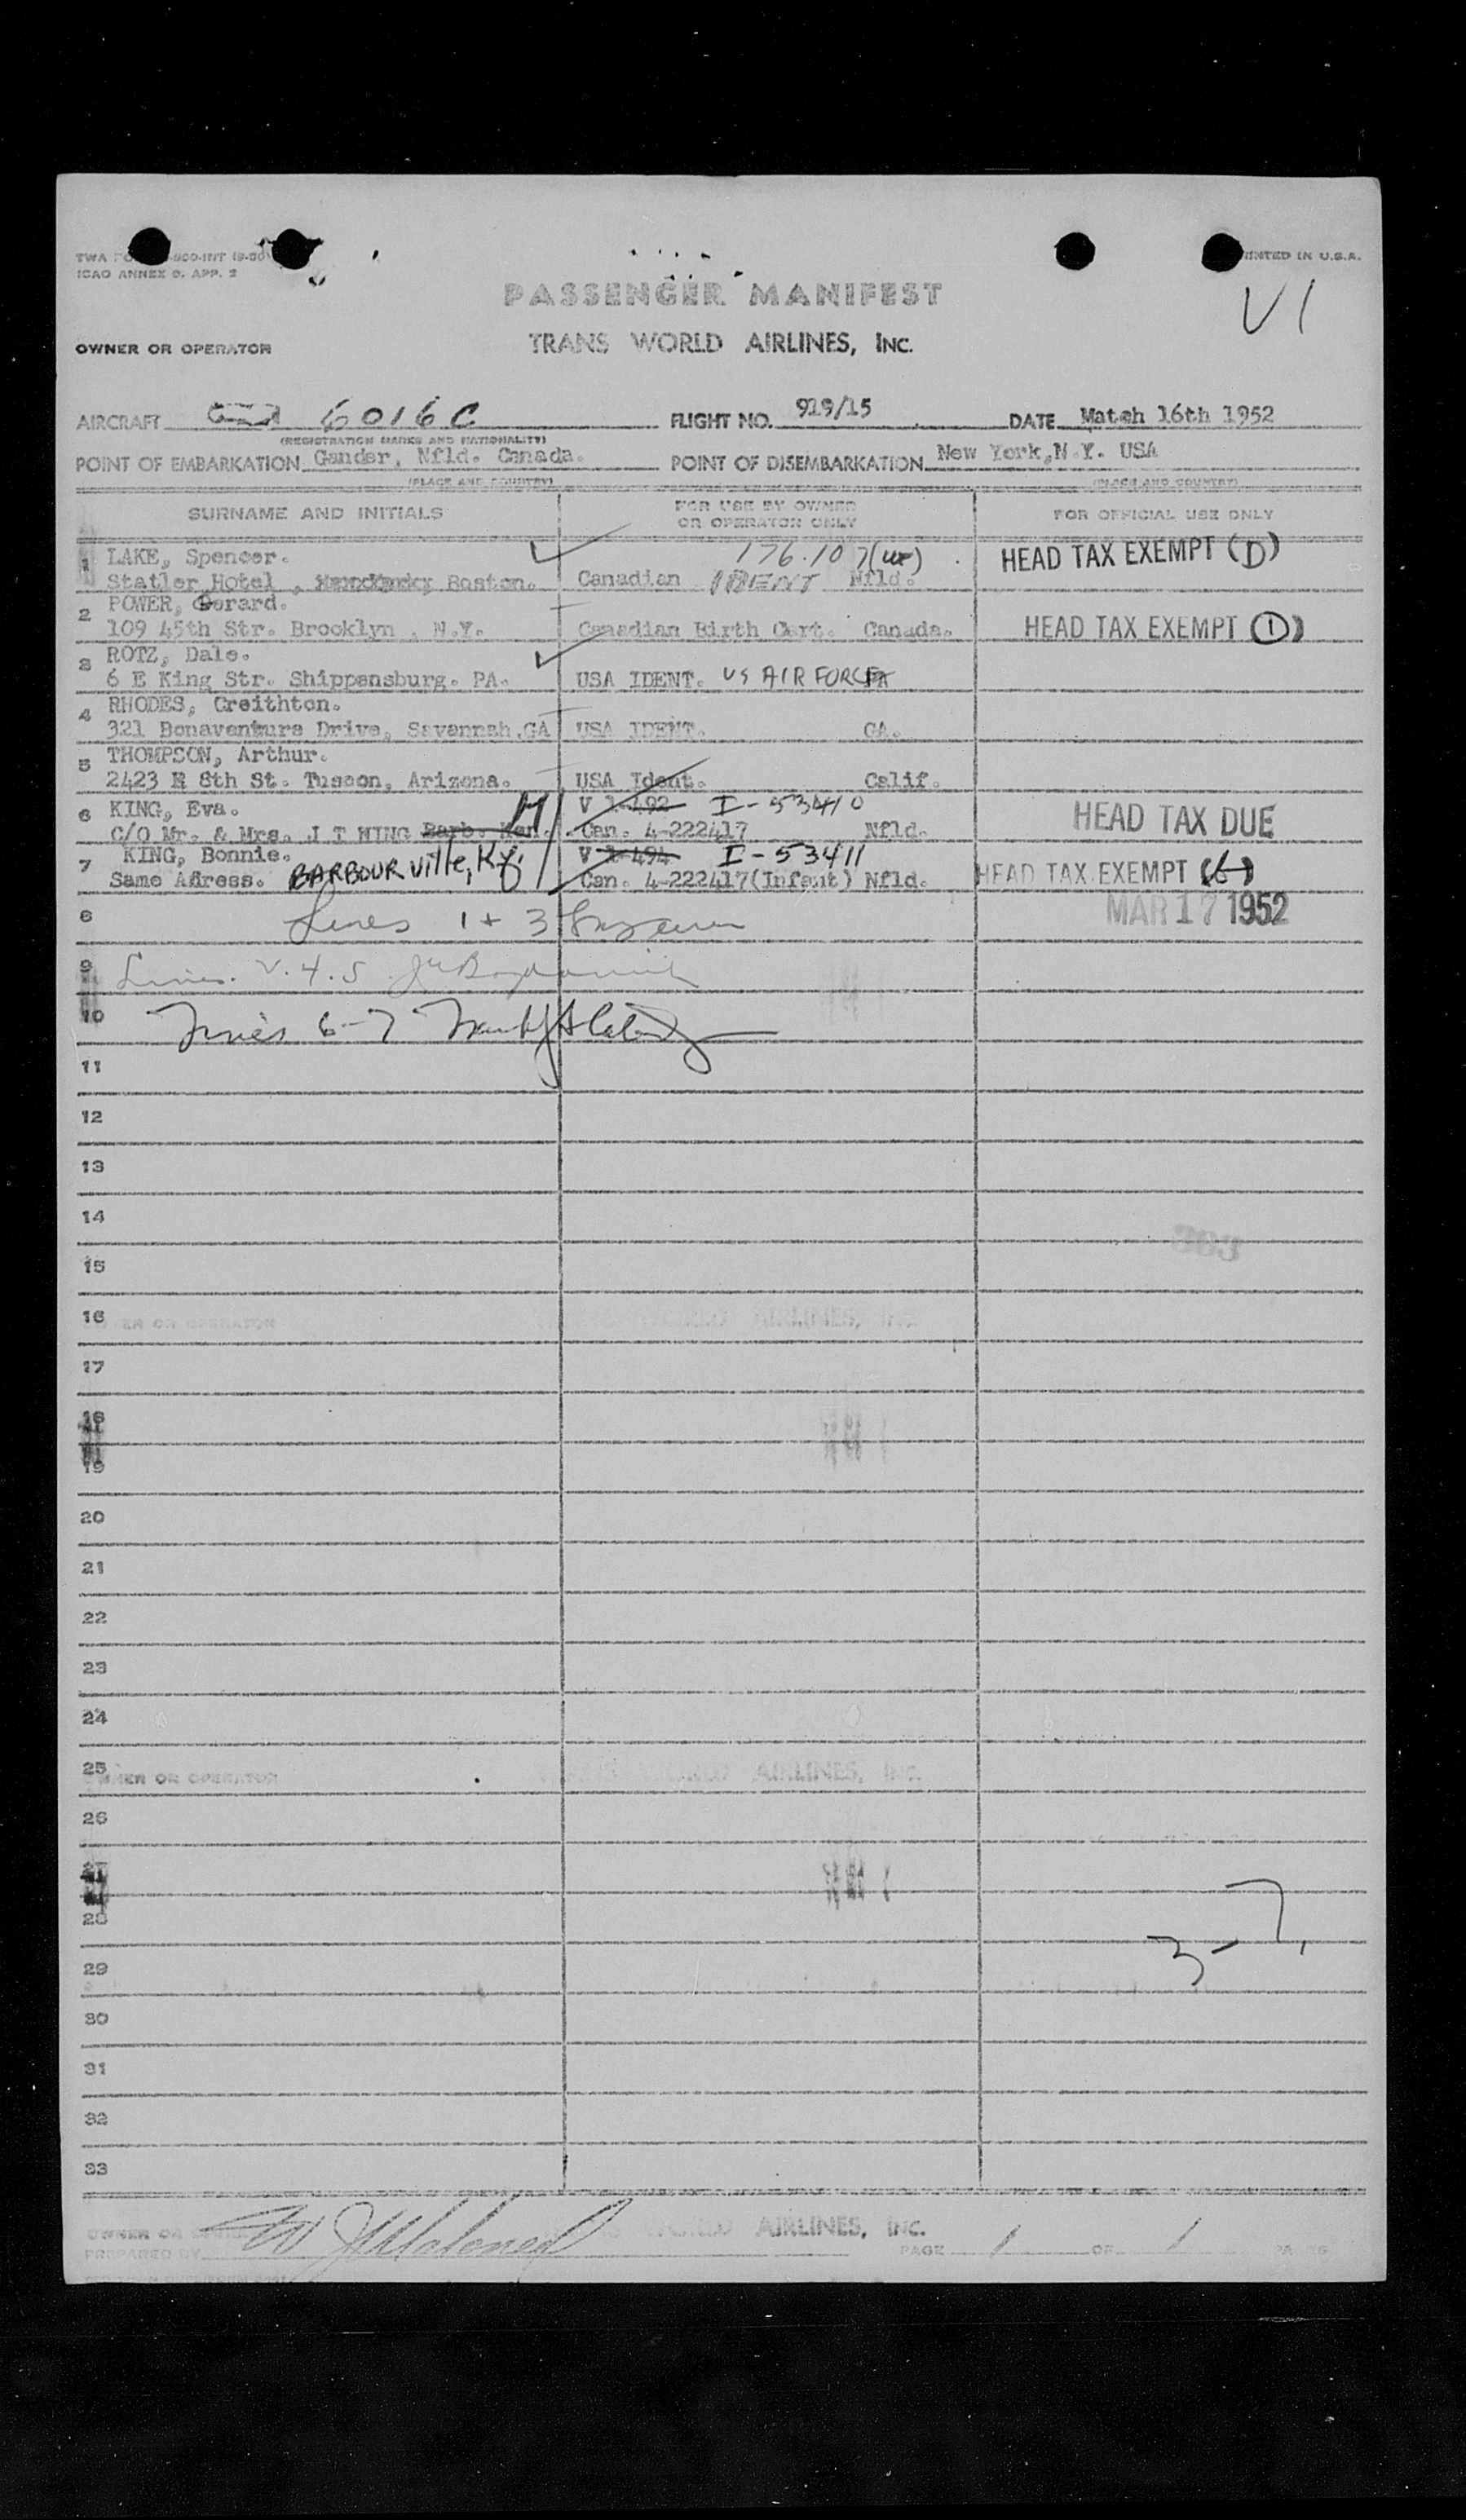 ICAO ANNEX 9. APP. 2
PRINTED IN U.S.A.
PASSENGER MANIFEST
V1
OWNER OR OPERATOR
TRANS WORLD AIRLINES, INC.
AIRCRAFT 6016C FLIGHT NO. 919/15 DATE Match 16th 1952
(REGISTRATION MARKS AND NATIONALITY)
POINT OF EMBARKATION Gander, Nfld. Canada. POINT OF DISEMBARKATION New York,N.Y. USA
(PLACE AND COUNTRY) (PLACE AND COUNTRY)
SURNAME AND INITIALS FOR USE BY OWNER OR OPERATOR ONLY FOR OFFICIAL USE ONLY
1 LAKE, Spencer. 176.107 HEAD TAX EXEMPT (D)
Statler Hotel , Boston. Canadian IDENT Nfld.
2 POWER, Gerard.
109 45th Str. Brooklyn , N.Y. Canadian Birth Cert. Canada. HEAD TAX EXEMPT (1)
3 ROTZ, Dale.
6 E King Str. Shippensburg. PA. USA IDENT. US AIR FORCE PA
4 RHODES, Creithton.
321 Bonaventure Drive, Savannah,GA USA IDENT. GA.
5 THOMPSON, Arthur.
2423 E 8th St. Tuscon, Arizona. USA Ident. Calif.
6 KING, Eva. V 1-492 I-53410 HEAD TAX DUE
C/O Mr. & Mrs. J T KING Barb. Ken. Can. 4-222417 Nfld.
7 KING, Bonnie. V 1-494 I-53411
Same Adress. BARBOURville, Ky. Can. 4-222417(Infant) Nfld. HEAD TAX EXEMPT
8 Lines 1 + 3 MAR 17 1952
9 Lines 2.4.5
10 Lines 6-7
11
12
13
14
15
16
17
18
19
20
21
22
23
24
25
26
27
28
3-7
29
30
31
32
33
AIRLINES, INC.
PREPARED BY PAGE 1 OF 1 PAGES